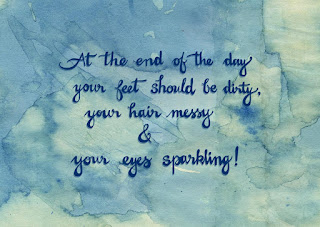 At the end of the day
your feet should be dirty,
your hair messy
&
your eyes sparkling!